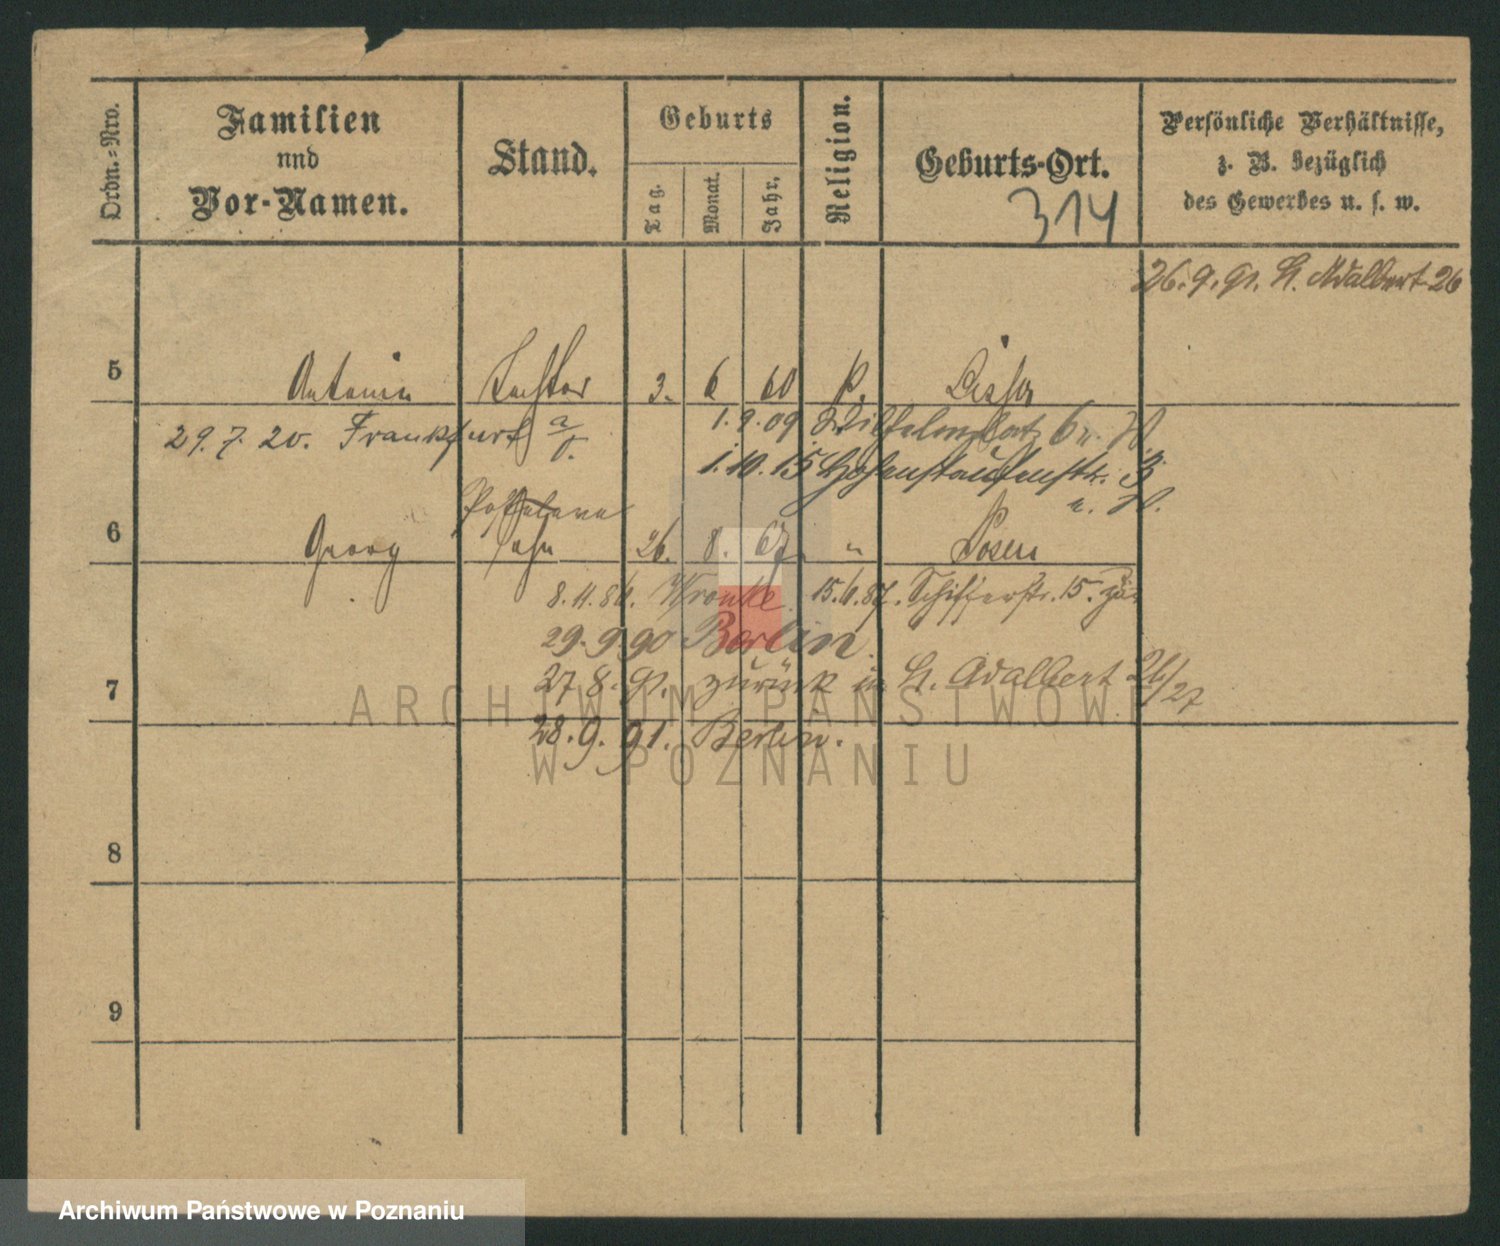 Ordn.=Nro.
Familien
und
Vor-Namen.
Stand.
Geburts
Tag.
Monat.
Jahr.
Religion.
Geburts-Ort.
314
Persönliche Verhältnisse,
z. B. bezüglich
des Gewerbes u. s. w.
26. 9. 91. St. Adalbert 26
5 Antonie Tochter 3. 6 60 k. Lissa
29. 7. 20. Frankfurt a/O.
1. 9. 09 Wilhelmplatz 6 u. H.
1. 10. 15 Hohenstaufenstr. 3
u. H.
6 Georg Sohn 26. 8. 67. " Posen
8. 11. 86. Wronke. 15. 6. 87. Schifferstr. 15.
29. 9. 90 Berlin.
7
27. 8. 91. zurück in St. Adalbert 26/27
28. 9. 91. Berlin.
8
9
ARCHIWUM PAŃSTWOWE
W POZNANIU
Archiwum Państwowe w Poznaniu